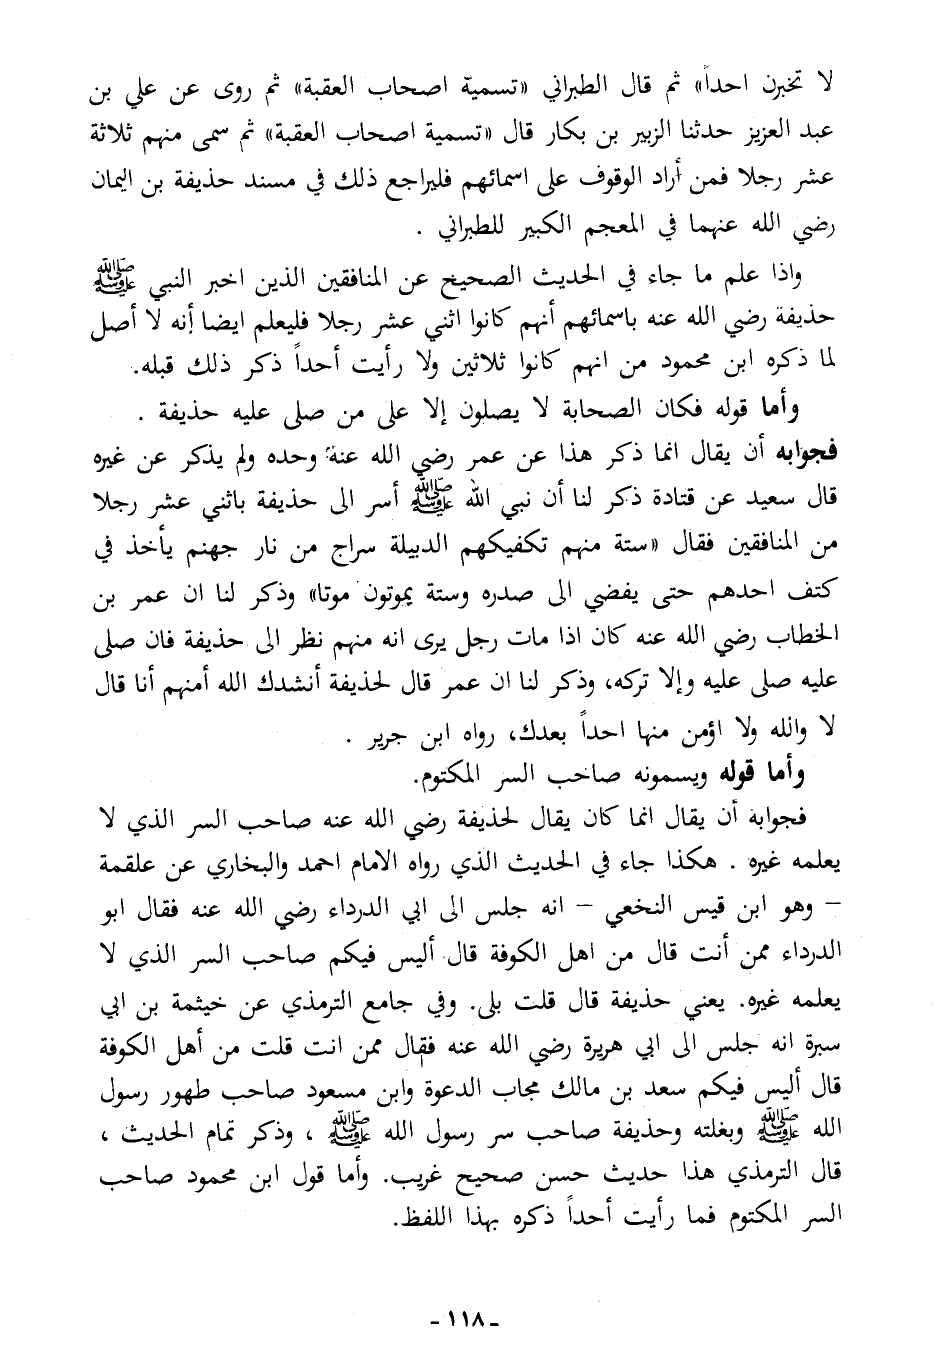 لا تخبرن احداً» ثم قال الطبراني «تسمية اصحاب العقبة» ثم روى عن علي بن
عبد العزيز حدثنا الزبير بن بكار قال «تسمية اصحاب العقبة» ثم سمى منهم ثلاثة
عشر رجلا فمن أراد الوقوف على اسمائهم فليراجع ذلك في مسند حذيفة بن اليمان
رضي الله عنهما في المعجم الكبير للطبراني .
واذا علم ما جاء في الحديث الصحيح عن المنافقين الذين اخبر النبي ﷺ
حذيفة رضي الله عنه باسمائهم أنهم كانوا اثني عشر رجلا فليعلم ايضا أنه لا أصل
لما ذكره ابن محمود من انهم كانوا ثلاثين ولا رأيت أحداً ذكر ذلك قبله.
وأما قوله فكان الصحابة لا يصلون إلا على من صلى عليه حذيفة .
فجوابه أن يقال انما ذكر هذا عن عمر رضي الله عنه وحده ولم يذكر عن غيره
قال سعيد عن قتادة ذكر لنا أن نبي الله ﷺ أسر الى حذيفة باثني عشر رجلا
من المنافقين فقال «ستة منهم تكفيكهم الدبيلة سراج من نار جهنم يأخذ في
كتف احدهم حتى يفضي الى صدره وستة يموتون موتا» وذكر لنا ان عمر بن
الخطاب رضي الله عنه كان اذا مات رجل يرى انه منهم نظر الى حذيفة فان صلى
عليه صلى عليه وإلا تركه، وذكر لنا ان عمر قال لحذيفة أنشدك الله أمنهم أنا قال
لا والله ولا اؤمن منها احداً بعدك، رواه ابن جرير .
وأما قوله ويسمونه صاحب السر المكتوم.
فجوابه أن يقال انما كان يقال لحذيفة رضي الله عنه صاحب السر الذي لا
يعلمه غيره . هكذا جاء في الحديث الذي رواه الامام احمد والبخاري عن علقمة
– وهو ابن قيس النخعي – انه جلس الى ابي الدرداء رضي الله عنه فقال ابو
الدرداء ممن أنت قال من اهل الكوفة قال أليس فيكم صاحب السر الذي لا
يعلمه غيره. يعني حذيفة قال قلت بلى. وفي جامع الترمذي عن خيثمة بن ابي
سبرة انه جلس الى ابي هريرة رضي الله عنه فقال ممن انت قلت من أهل الكوفة
قال أليس فيكم سعد بن مالك مجاب الدعوة وابن مسعود صاحب طهور رسول
الله ﷺ وبغلته وحذيفة صاحب سر رسول الله ﷺ ، وذكر تمام الحديث ،
قال الترمذي هذا حديث حسن صحيح غريب. وأما قول ابن محمود صاحب
السر المكتوم فما رأيت أحداً ذكره بهذا اللفظ.
- ١١٨ -